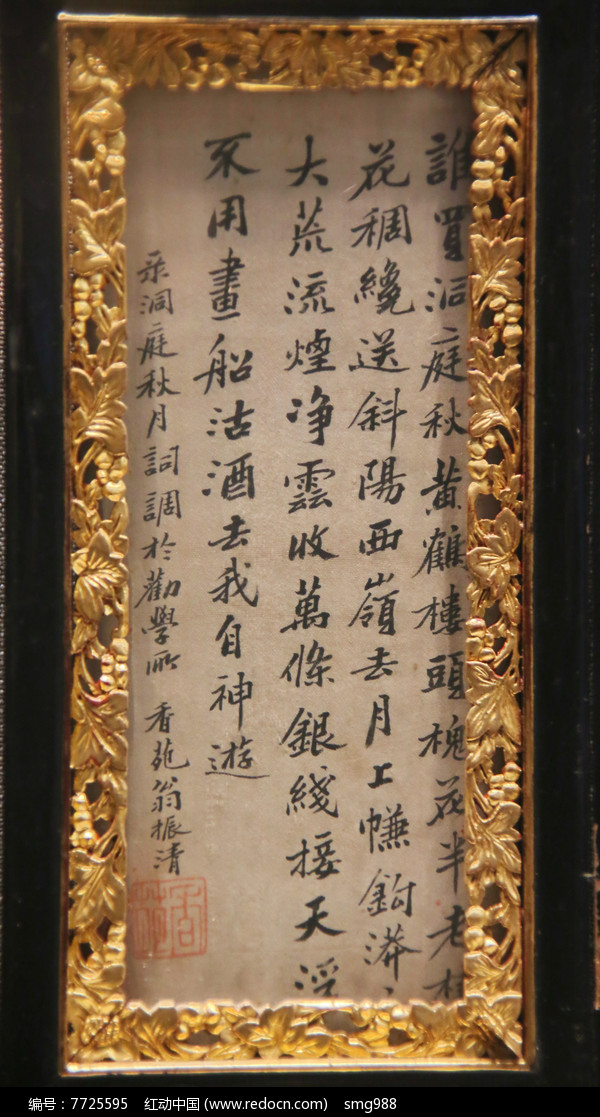 誰買洞庭秋黃鶴樓頭槐花半老桂
花稠纔送斜陽西嶺去月上㡘鈎漭
大荒流煙净雲收萬條銀綫接天浮
不用畫船沽酒去我自神遊
采洞庭秋月詞調於勸學所 香苑翁振清
编号：7725595 红动中国 (www.redocn.com) smg988